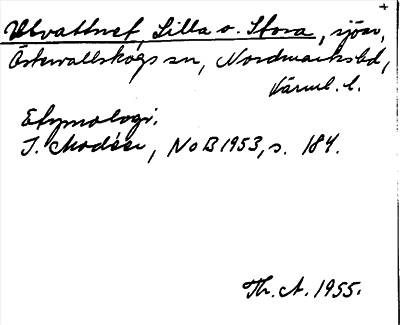 Ulvattnet, Lilla o. Stora, sjöar,
Östervallskogs sn, Nordmarks hd,
Värml. l.
Etymologi.
I. Modéer, NoB 1953, s. 184.
Th. A. 1955.